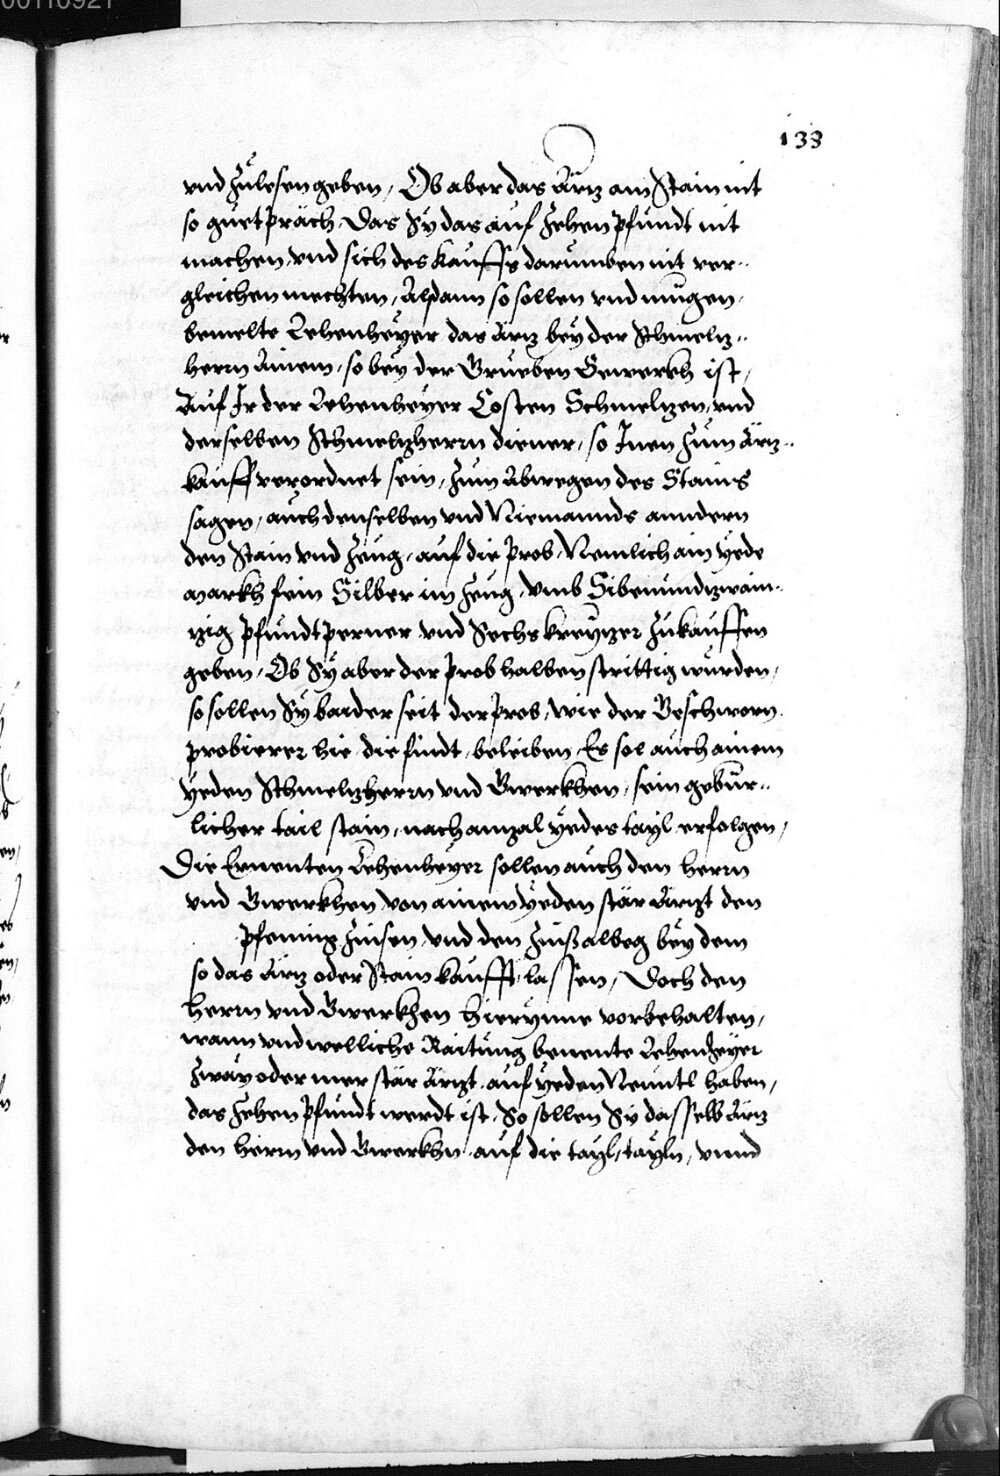 00110921
133
vnd zůlesen geben, Ob aber das Ärtz am Stain nit
so guet präch, Das Sy das auf Zehen pfundt nit
machen, vnd sich des kauffs darumben nit ver¬
gleichen mechten, Alßdann so sollen vnd mugen,
bemelte Lehenheÿer das ärtz beÿ der Schmeltz¬
herrn Ainem, so beÿ der Grueben Gewerkh ist,
Auf Ir der Lehenheÿer Costen Schmeltzen, vnd
derselben Schmeltzherrn diener, so Inen zum ärtz¬
kauff verordnet sein, zum abwegen des Stains
sagen, auch denselben vnd Niemannds anndern
den Stain vnd Zeug, auf die prob, Nemlich ain yede
markh fein Silber im Zeug, vmb Sibenundtzwain¬
tzig pfundt perner vnd Sechs kreytzer zukauffen
geben, Ob Sÿ aber der prob halben strittig wurden,
so sollen Sÿ baider seit der prob, wie der Beschworn
probierer hie die findt, beleiben, Es sol auch ainem
yeden Schmeltzherrn vnd Gwerkhen, sein gebür¬
licher tail stain, nach antzal ÿedes tayl erfolgen,
Die Ernenten Lehenheÿer sollen auch den herrn
vnd Gwerkhen von ainem ÿeden stär Ärtzt den
pfening Zinsen, vnd den Zinß albeg beÿ dem
so das ärtz oder Stain kaufft, lassen, Doch den
herrn vnd Gwerkhen hierÿnne vorbehalten,
wann vnd welliche Raitung benente Lehenheÿer
Zwaÿ oder mer stär ärtzt, auf ÿeden Neuntl haben,
das Zehen pfundt werdt ist, So sollen Sÿ dasselb ärtz
den herrn vnd Gwerkhn auf die tayl, tayln, vnnd